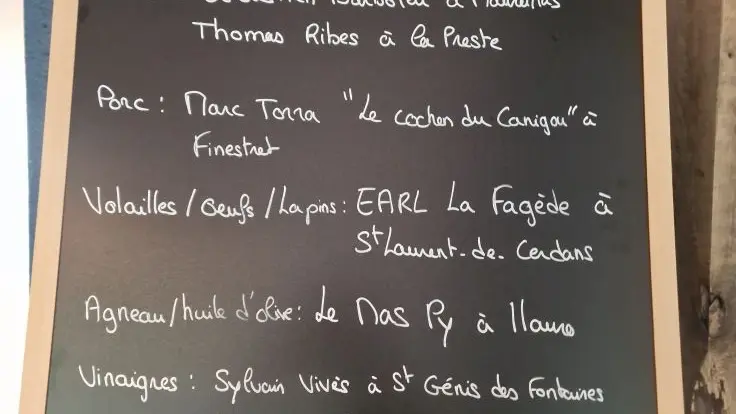 à
Thomas Ribes à la Preste
Porc : Marc Torra "Le cochon du Canigou" à
Finestret
Volailles / Oeufs / Lapins : EARL La Fagède à
St Laurent-de-Cerdans
Agneau/huile d'olive : Le Mas Py à
Vinaigres : Sylvain Vivès à St Génis des Fontaines